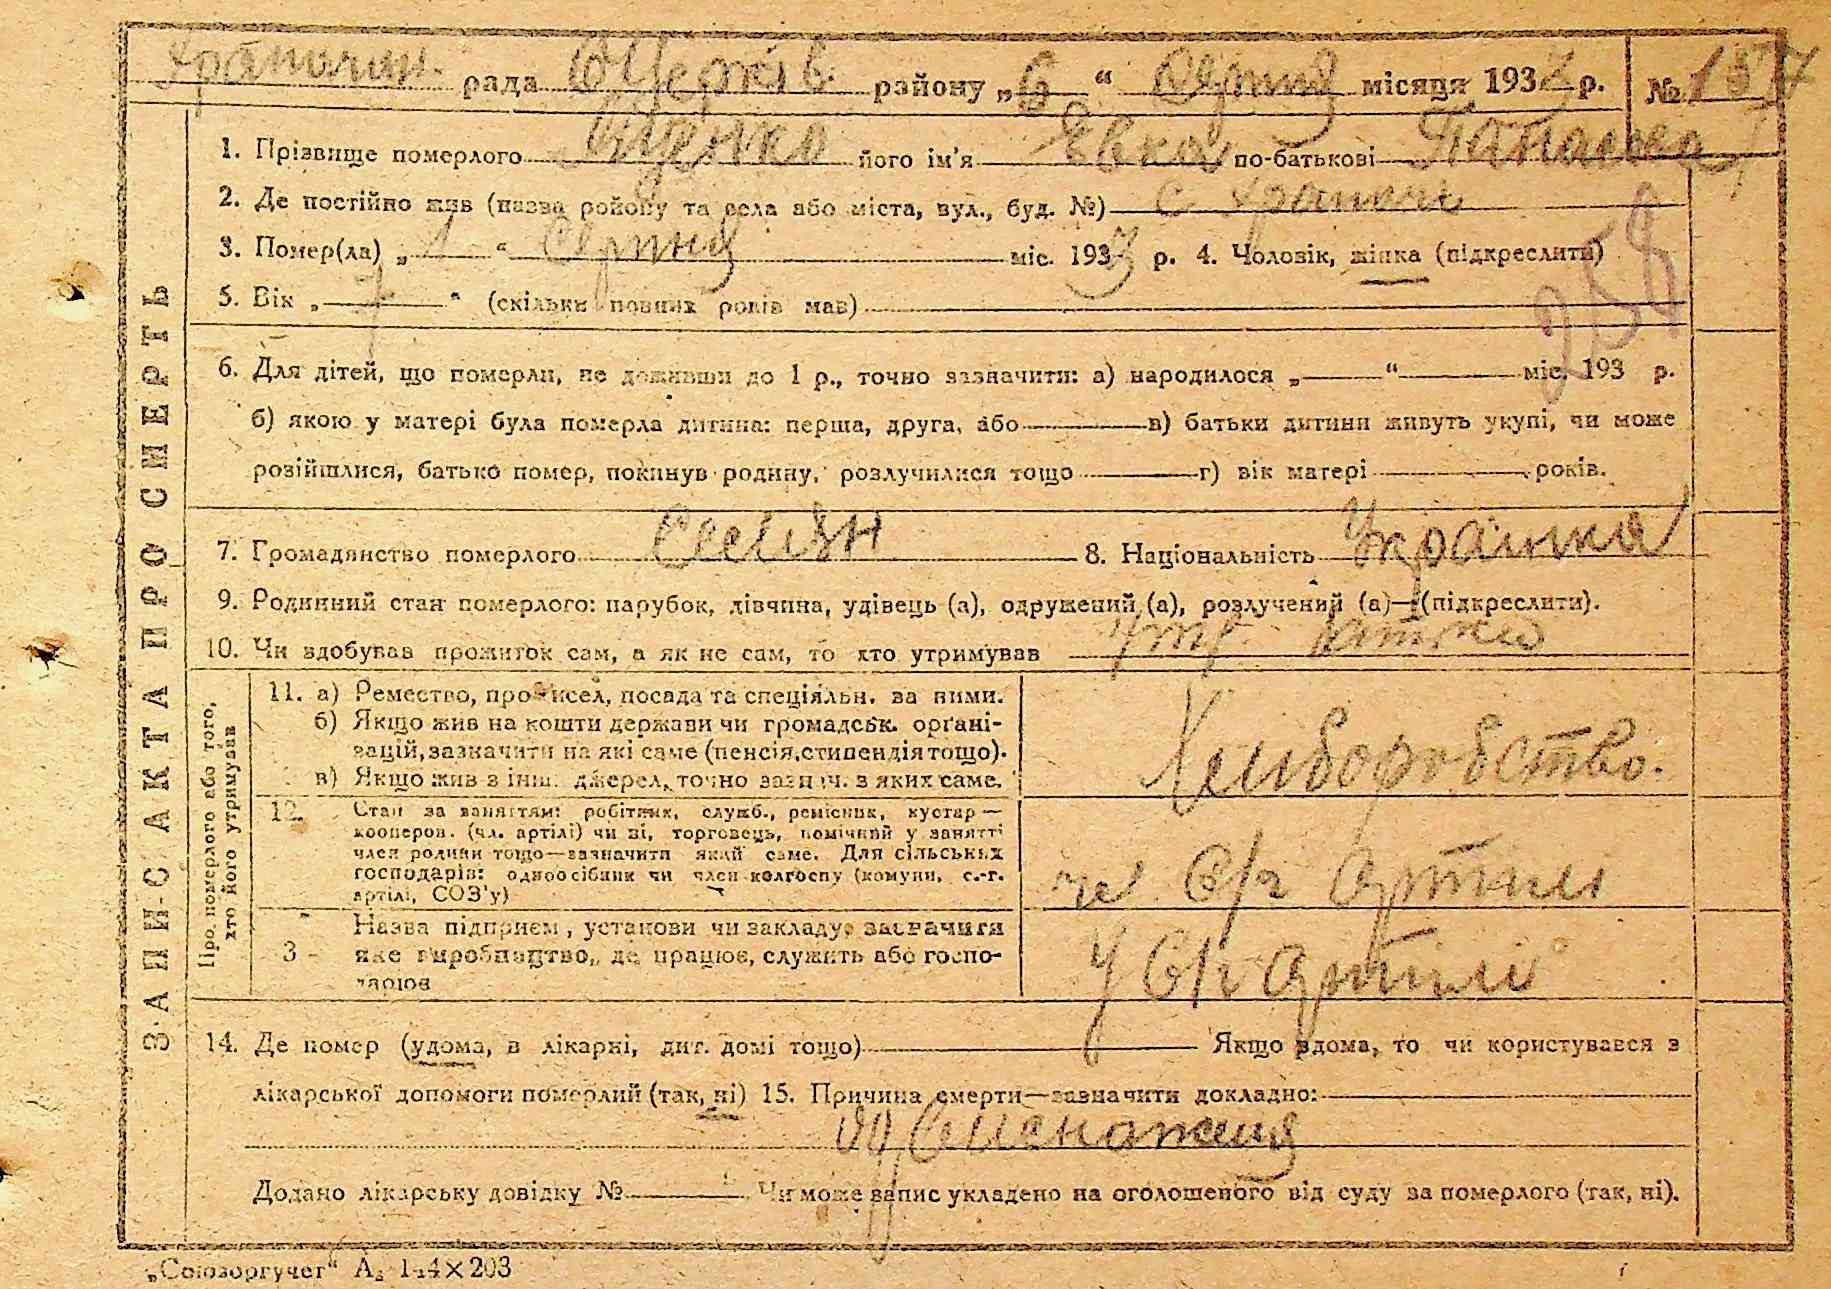 рада БЦерків району „6“ Серпня місяця 1933 р. № 137
1. Прізвище померлого Іщенко його ім'я Явка по-батькові Панасовна
2. Де постійно жив (назва району та села або міста, вул., буд. №) с. Храпачі
3. Помер(ла) „1“ Серпня міс. 1933 р. 4. Чоловік, жінка (підкреслити)
258
5. Вік „7“ (скільки повних років мав)
6. Для дітей, що померли, не доживши до 1 р., точно зазначити: а) народилося „ “ міс. 193 р.
б) якою у матері була померла дитина: перша, друга, або в) батьки дитини живуть укупі, чи може
розійшлися, батько помер, покинув родину, розлучилися тощо г) вік матері років.
7. Громадянство померлого Селян 8. Національність Українка
9. Родинний стан померлого: парубок, дівчина, удівець (а), одружений (а), розлучений (а)—(підкреслити).
10. Чи здобував прожиток сам, а як не сам, то хто утримував утр. батько
ЗАПИС АКТА ПРО СМЕРТЬ
Про померлого або того, хто його утримував
11. а) Ремество, промисел, посада та спеціяльн. за ними.
б) Якщо жив на кошти держави чи громадськ. органі-
зацій, зазначити на які саме (пенсія, стипендія тощо).
в) Якщо жив з інш. джерел, точно зазнач. з яких саме.
Хлиборобство.
12. Стан за заняттям: робітник, служб., ремісник, кустар—
кооперов. (чл. артілі) чи ні, торговець, помічний у занятті
член родини тощо—зазначити який саме. Для сільських
господарів: одноосібник чи член колгоспу (комуни, с.-г.
артілі, СОЗ'у)
чл С/г Артили
3 - Назва підприєм., установи чи закладу, зазначити
яке виробництво, де працює, служить або госпо-
дарює
у С/г Артилі
14. Де помер (удома, в лікарні, дит. домі тощо) Якщо вдома, то чи користувався з
лікарської допомоги померлий (так, ні) 15. Причина смерти—зазначити докладно:
од Виснаженя
Додано лікарську довідку № Чи може запис укладено на оголошеного від суду за померлого (так, ні).
„Союзоргучет“